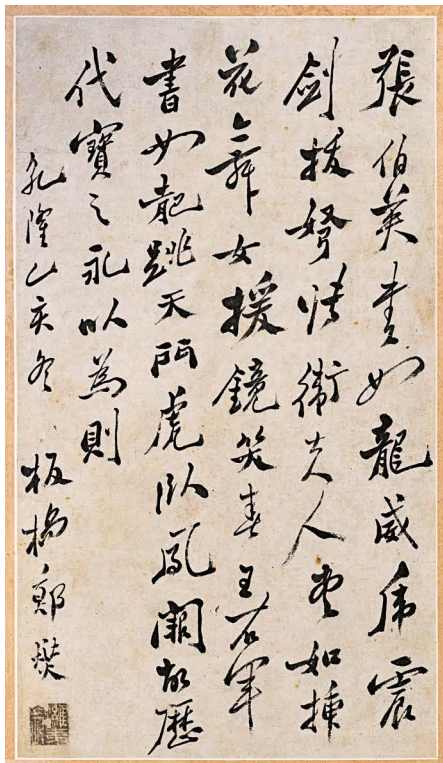 張伯英書如龍威虎震
劍拔弩張衛夫人書如揷
花舞女援鏡笑春王右軍
書如龍跳天門虎臥鳳闕故歷
代寶之永以為則
乾隆乙亥冬 板橋鄭燮